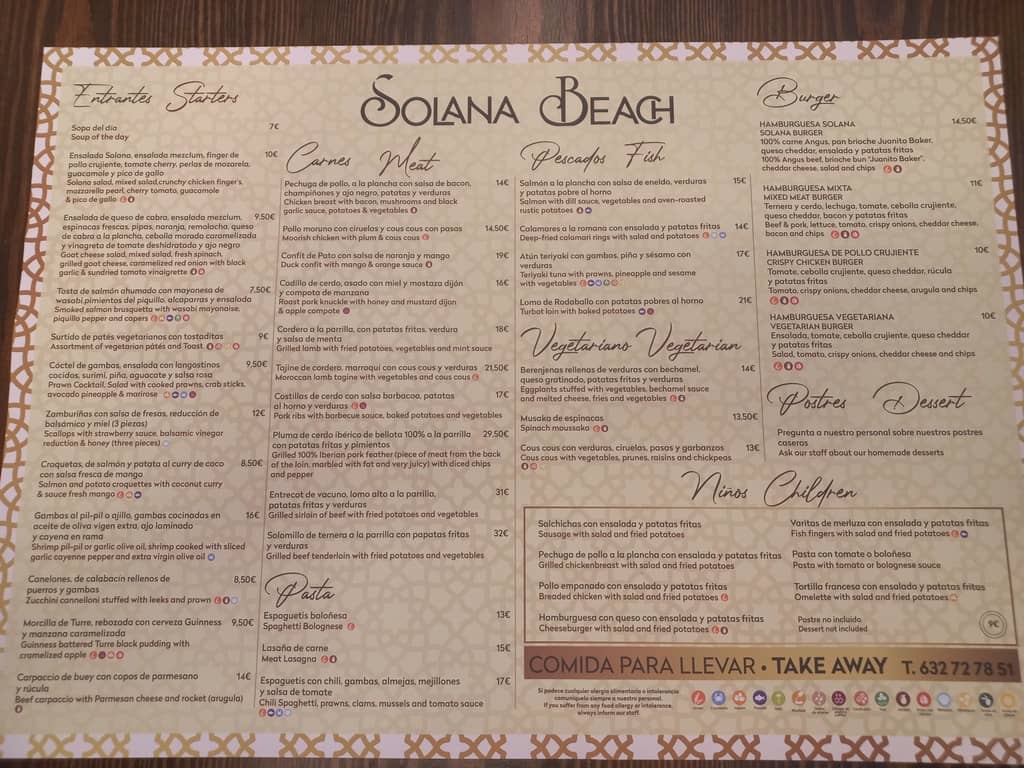 SOLANA BEACH
Entrantes Starters
Sopa del día 7€
Soup of the day
Ensalada Solana, ensalada mezclum, finger de 10€
pollo crujiente, tomate cherry, perlas de mozarela,
guacamole y pico de gallo
Solana salad, mixed salad,crunchy chicken finger's,
mozzarella pearl, cherry tomato, guacamole
& pico de gallo
Ensalada de queso de cabra, ensalada mezclum, 9,50€
espinacas frescas, pipas, naranja, remolacha, queso
de cabra a la plancha, cebolla morada caramelizada
y vinagreta de tomate deshidratado y ajo negro
Goat cheese salad, mixed salad, fresh spinach,
grilled goat cheese, caramelized red onion with black
garlic & sundried tomato vinaigrette
Tosta de salmón ahumado con mayanesa de 7,50€
wasabi,pimientos del piquillo, alcaparras y ensalada
Smoked salmon brusquetta with wasabi mayonaise,
piquillo pepper and capers
Surtido de patés vegetarianos con tostaditas 9€
Assortment of vegetarian pâtés and Toast
Cóctel de gambas, ensalada con langostinos 9,50€
cocidos, surimi, piña, aguacate y salsa rosa
Prawn Cocktail, Salad with cooked prawns, crab sticks,
avocado pineapple & marirose
Zamburiñas con salsa de fresas, reducción de 12€
balsámico y miel (3 piezas)
Scallops with strawberry sauce, balsamic vinegar
reduction & honey (three pieces)
Croquetas, de salmón y patata al curry de coco 8,50€
con salsa fresca de mango
Salmon and potato croquettes with coconut curry
& sauce fresh mango
Gambas al pil-pil o ajillo, gambas cocinadas en 16€
aceite de oliva vigen extra, ajo laminado
y cayena en rama
Shrimp pil-pil or garlic olive oil, shrimp cooked with sliced
garlic cayenne pepper and extra virgin olive oil
Canelones, de calabacín rellenos de 8,50€
puerros y gambas
Zucchini cannelloni stuffed with leeks and prawn
Morcilla de Turre, rebozada con cerveza Guinness 9,50€
y manzana caramelizada
Guinness battered Turre black pudding with
cramelized apple
Carpaccio de buey con copos de parmesano 14€
y rúcula
Beef carpaccio with Parmesan cheese and rocket (arugula)
Carnes Meat
Pechuga de pollo, a la plancha con salsa de bacon, 14€
champiñones y ajo negro, patatas y verduras
Chicken breast with bacon, mushrooms and black
garlic sauce, potatoes & vegetables
Pollo moruno con ciruelas y cous cous con pasas 14,50€
Moorish chicken with plum & cous cous
Confit de Pato con salsa de naranja y mango 19€
Duck confit with mango & orange sauce
Codillo de cerdo, asado con miel y mostaza dijón 16€
y compota de manzana
Roast pork knuckle with honey and mustard dijon
& apple compote
Cordero a la parrilla, con patatas fritas, verdura 18€
y salsa de menta
Grilled lamb with fried potatoes, vegetables and mint sauce
Tajine de cordero, marroquí con cous cous y verduras 21,50€
Moroccan lamb tagine with vegetables and cous cous
Costillas de cerdo con salsa barbacoa, patatas 17€
al horno y verduras
Pork ribs with barbecue sauce, baked potatoes and vegetables
Pluma de cerdo ibérico de bellota 100% a la parrilla 29,50€
con patatas fritas y pimientos
Grilled 100% Iberian pork feather (piece of meat from the back
of the loin, marbled with fat and very juicy) with diced chips
and pepper
Entrecot de vacuno, lomo alto a la parrilla, 31€
patatas fritas y verduras
Grilled sirloin of beef with fried potatoes and vegetables
Solomillo de ternera a la parrilla con papatas fritas 32€
y verduras
Grilled beef tenderloin with fried potatoes and vegetables
Pasta
Espaguetis boloñesa 13€
Spaghetti Bolognese
Lasaña de carne 15€
Meat Lasagna
Espaguetis con chili, gambas, almejas, mejillones 17€
y salsa de tomate
Chili Spaghetti, prawns, clams, mussels and tomato sauce
Pescados Fish
Salmón a la plancha con salsa de eneldo, verduras 15€
y patatas pobre al horno
Salmon with dill sauce, vegetables and oven-roasted
rustic potatoes
Calamares a la romana con ensalada y patatas fritas 14€
Deep-fried calamari rings with salad and potatoes
Atún teriyaki con gambas, piña y sésamo con 17€
verduras
Teriyaki tuna with prawns, pineapple and sesame
with vegetables
Lomo de Rodaballo con patatas pobres al horno 21€
Turbot loin with baked potatoes
Vegetariano Vegetarian
Berenjenas rellenas de verduras con bechamel, 14€
queso gratinado, patatas fritas y verduras
Eggplants stuffed with vegetables, bechamel sauce
and melted cheese, fries and vegetables
Musaka de espinacas 13,50€
Spinach moussaka
Cous cous con verduras, ciruelas, pasas y garbanzos 13€
Cous cous with vegetables, prunes, raisins and chickpeas
Burger
HAMBURGUESA SOLANA 14,50€
SOLANA BURGER
100% carne Angus, pan brioche Juanito Baker,
queso cheddar, ensalada y patatas fritas
100% Angus beef, brioche bun "Juanito Baker",
cheddar cheese, salad and chips
HAMBURGUESA MIXTA 11€
MIXED MEAT BURGER
Ternera y cerdo, lechuga, tomate, cebolla crujiente,
queso cheddar, bacon y patatas fritas
Beef & pork, lettuce, tomato, crispy onions, cheddar cheese,
bacon and chips
HAMBURGUESA DE POLLO CRUJIENTE 10€
CRISPY CHICKEN BURGER
Tomate, cebolla crujiente, queso cheddar, rúcula
y patatas fritas
Tomato, crispy onions, cheddar cheese, arugula and chips
HAMBURGUESA VEGETARIANA 10€
VEGETARIAN BURGER
Ensalada, tomate, cebolla crujiente, queso cheddar
y patatas fritas
Salad, tomato, crispy onions, cheddar cheese and chips
Postres Dessert
Pregunta a nuestro personal sobre nuestros postres
caseros
Ask our staff about our homemade desserts
Niños Children
Salchichas con ensalada y patatas fritas
Sausage with salad and fried potatoes
Pechuga de pollo a la plancha con ensalada y patatas fritas
Grilled chickenbreast with salad and fried potatoes
Pollo empanado con ensalada y patatas fritas
Breaded chicken with salad and fried potatoes
Hamburguesa con queso con ensalada y patatas fritas
Cheeseburger with salad and fried potatoes
Varitas de merluza con ensalada y patatas fritas
Fish fingers with salad and fried potatoes
Pasta con tomate o boloñesa
Pasta with tomato or bolognese sauce
Tortilla francesa con ensalada y patatas fritas
Omelette with salad and fried potatoes
Postre no incluido
Dessert not included
9€
COMIDA PARA LLEVAR • TAKE AWAY T. 632 72 78 51
Si padece cualquier alergia alimentaria o intolerancia
comuníquelo siempre a nuestro personal.
If you suffer from any food allergy or intolerance,
always inform our staff.